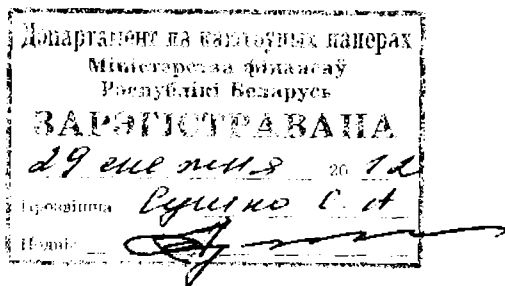 Дэпартамент па каштоўных паперах
Міністэрства фінансаў
Рэспублікі Беларусь
ЗАРЭГІСТРАВАНА
29 снежня 20 12
Прозвішча Сушко С. А
Подпіс